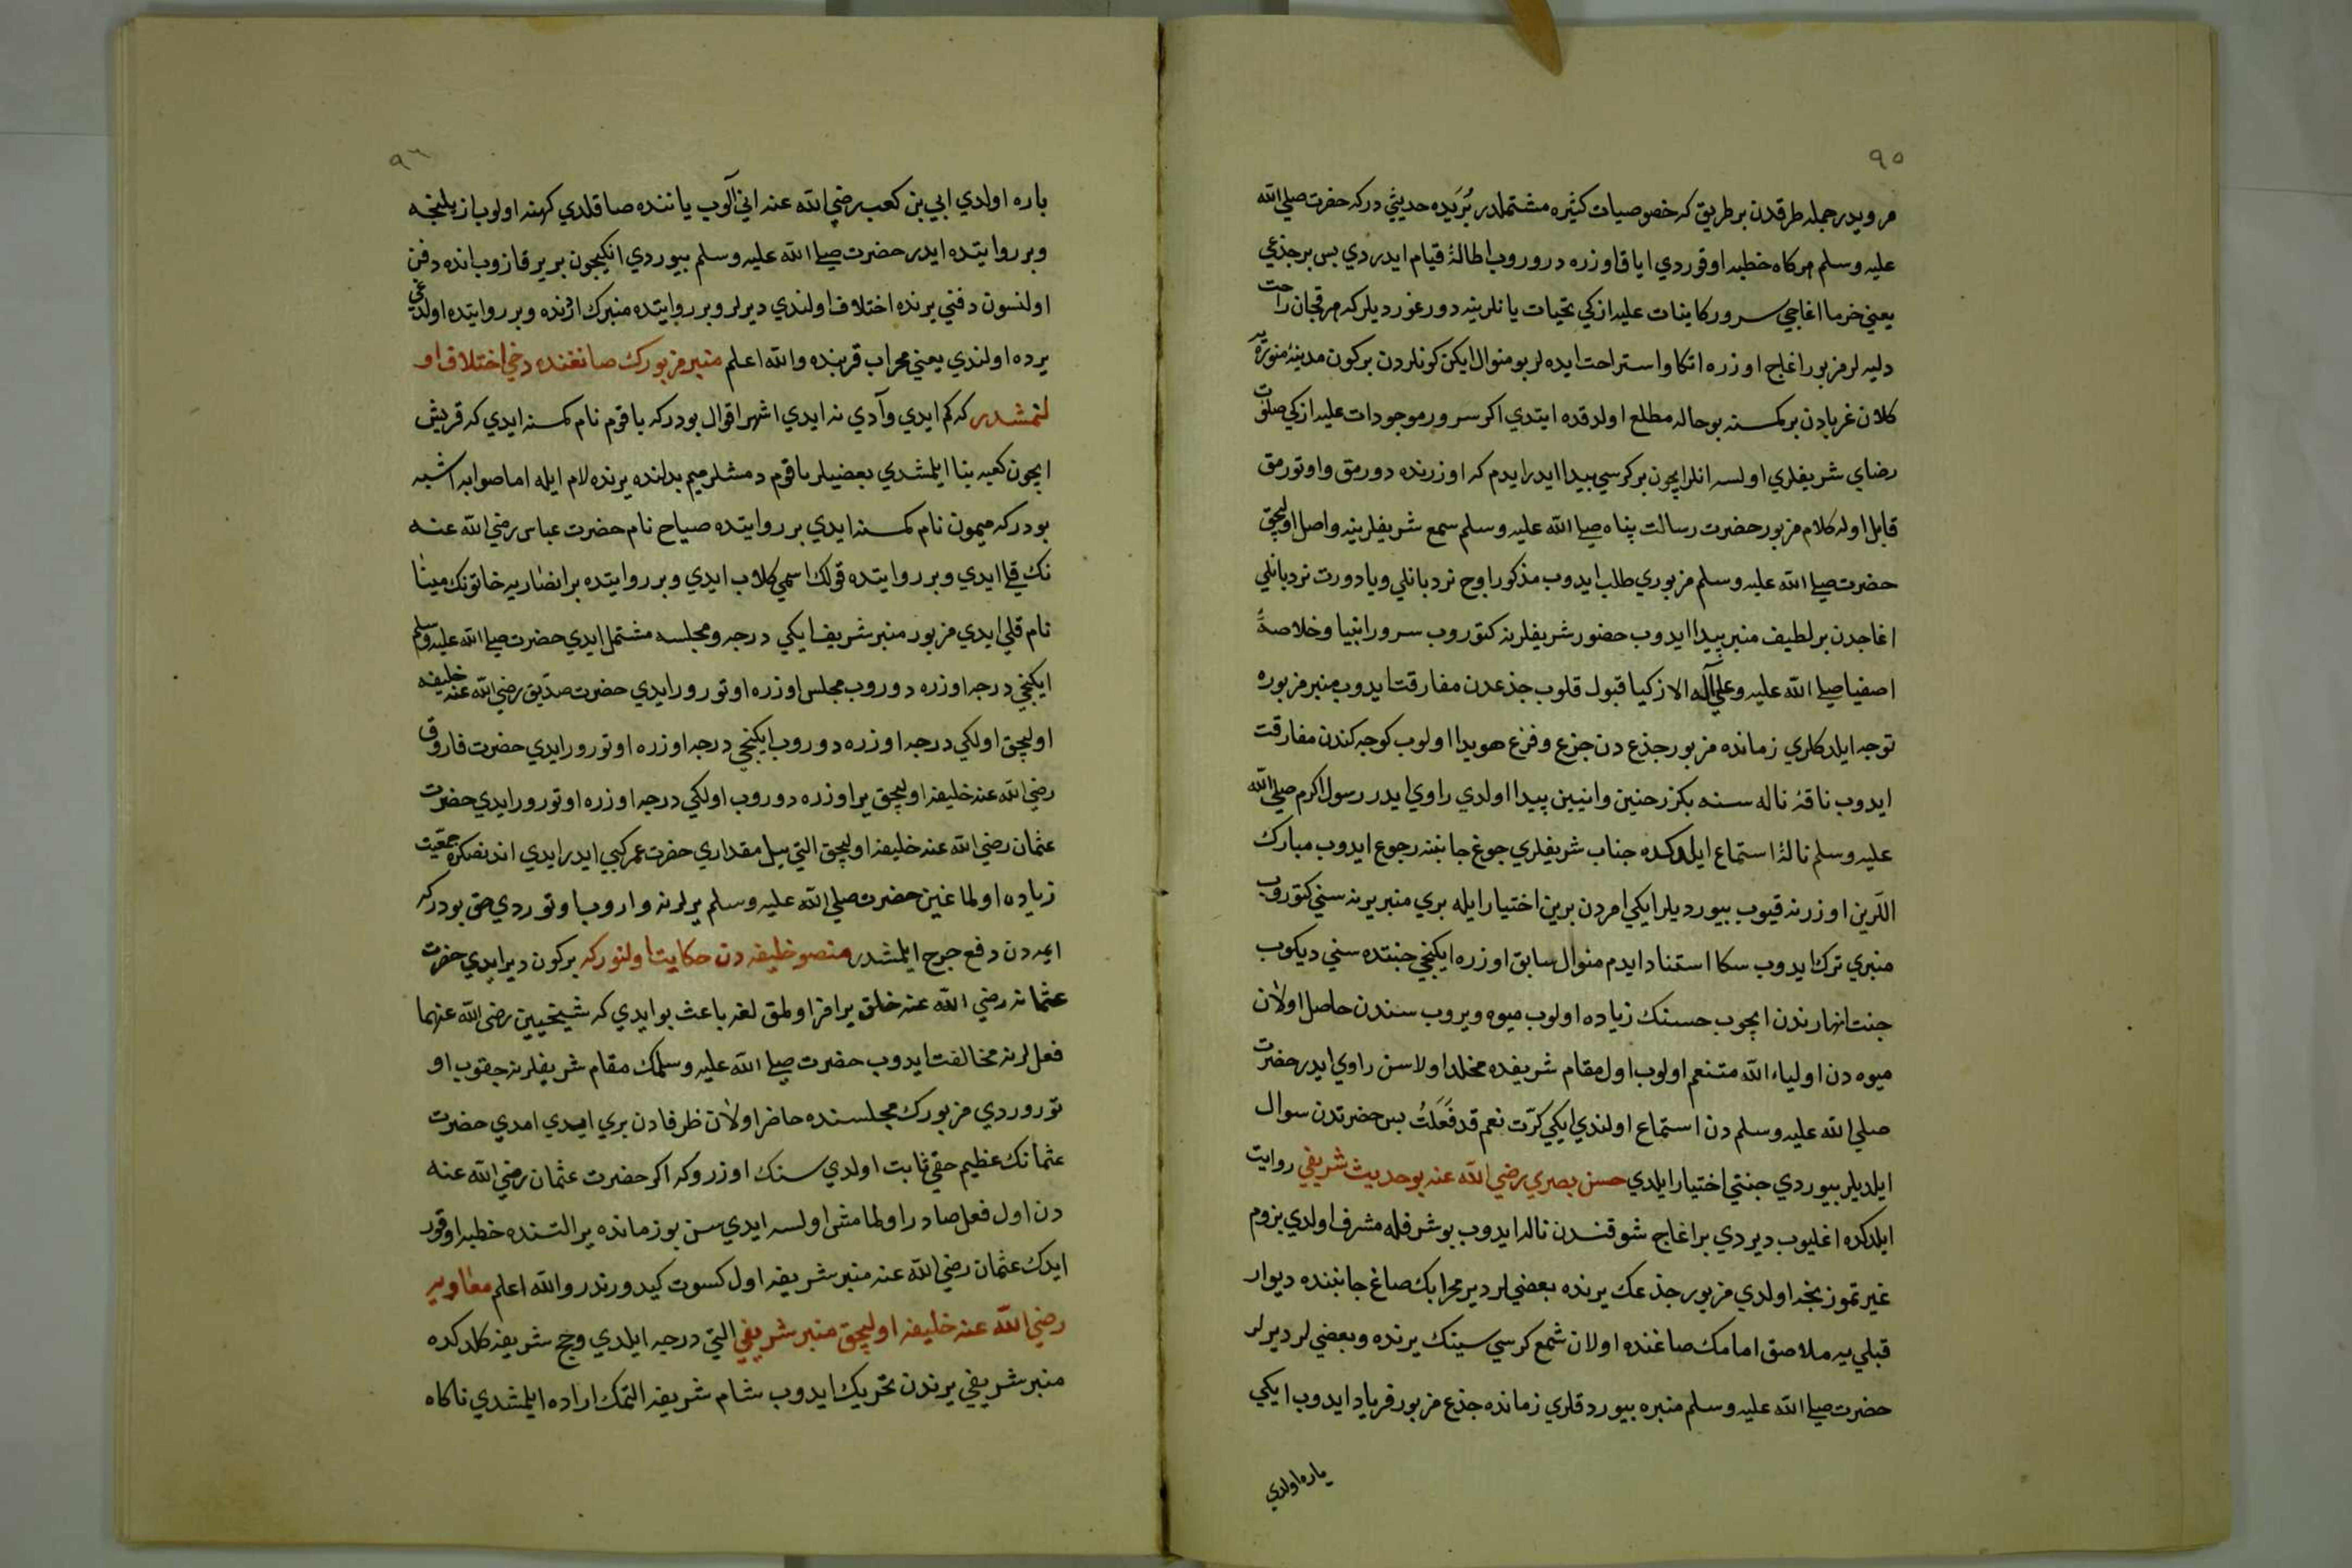 ٩٥
مرويدر جمله طرقدن بر طريق كه خصوصيات كثيره مشتملدر بُرَيده حديثي دركه حضرت صلي الله
عليه وسلم هركاه خطبه اوقوردي اياق اوزره دوروب اطالۀ قيام ايدردي پس بر جذعي
يعني خرما اغاجي سرور كاينات عليه ازكي تحيات يانلرينه دورغورديلركه هرقچان راحت
دليه لر مزبور اغاج اوزره اتكا واستراحت ايده لر بو منوال ايكن كونلردن بركون مدينۀ منوّره يه
كلان غربادن بر كمسنه بو حاله مطلع اولدقده ايتدي اكر سرور موجودات عليه ازكي صلوٰت
رضاي شريفلري اولسه انلر ايچون بر كرسي پيدا ايدرايدم كه اوزرنده دورمق واوتورمق
قابل اوله كلام مزبور حضرت رسالت پناه صلي الله عليه وسلم سمع شريفلرينه واصل اوليجق
حضرت صلي الله عليه وسلم مزبوري طلب ايدوب مذكور اوچ نردبانلي ويا دورت نردبانلي
اغاجدن بر لطيف منبر پيدا ايدوب حضور شريفلرنه كتوروب سرور انبيا وخلاصۀ
اصفيا صلي الله عليه وعلي آله الازكيا قبول قلوب جذعدن مفارقت ايدوب منبر مزبوره
توجه ايلدكلري زمانده مزبور جذع دن جزع وفزع هويدا اولوب كوجه كندن مفارقت
ايدوب ناقۀ ناله سنه بكزر حنين وانيين پيدا اولدي راوي ايدر رسول اكرم صلي الله
عليه وسلم نالۀ استماع ايلدكده جناب شريفلري جوغ جانبنه رجوع ايدوب مبارك
اللرين اوزرنه قيوب بيورديلر ايكي امردن برين اختيار ايله بري منبر يرنه سني كتوروب
منبري ترك ايدوب سكا استناد ايدم منوال سابق اوزره ايكنجي جنتده سني ديكوب
جنت انهارندن ايچوب حسنك زياده اولوب ميوه ويروب سندن حاصل اولان
ميوه دن اولياء الله متنعم اولوب اول مقام شريفده مخلد اولاسن راوي ايدر حضرت
صلي الله عليه وسلم دن استماع اولندي ايكي كرّت نعم قد فَعَلتُ پس حضرتدن سوال
ايلديلر بيوردي جنتي اختيار ايلدي حسن بصري رضي الله عنه بو حديث شريفي روايت
ايلدكده اغليوب ديردي بر اغاج شوقندن ناله ايدوب بو شرفله مشرف اولدي بزوم
غيرتموز نجه اولدي مزبور جذعك يرنده بعضي لر دير محرابك صاغ جانبنده ديوار
قبلي يه ملاصق امامك صاغنده اولان شمع كرسي سينك يرنده وبعضي لر ديرلر
حضرت صلي الله عليه وسلم منبره بيوردقلري زمانده جذع مزبور فرياد ايدوب ايكي
پاره اولدي
٩٦
پاره اولدي ابي بن كعب رضي الله عنه اني آلوب ياننده صاقلدي كهنه اولوب ازيلينجه
وبر روايتده ايدر حضرت صلي الله عليه وسلم بيوردي انكيچون بر ير قازوب انده دفن
اولنسون دفني يرنده اختلاف اولندي ديرلر وبر روايتده منبرك اوڭنده وبر روايتده اولدغي
يرده اولندي يعني محراب قربنده والله اعلم منبر مزبورك صانعنده دخي اختلاف او
لنمشدر كه كم ايدي وآدي نه ايدي اشهر اقوال بودركه باقوم نام كمسنه ايدي كه قريش
ايچون كعبه بنا ايلمشدي بعضيلر باقوم دمشلر ميم بدلنده يرنده لام ايله اما صوابه اشبه
بودركه ميمون نام كمسنه ايدي بر روايتده صباح نام حضرت عباس رضي الله عنه
نك قلي ايدي وبر روايتده قولك اسمي كلاب ايدي وبر روايتده بر انصاريه خاتونك مينا
نام قلي ايدي مزبور منبر شريف ايكي درجه ومجلسه مشتمل ايدي حضرت صلي الله عليه وسلم
ايكنجي درجه اوزره دوروب مجلس اوزره اوتورورايدي حضرت صدّيق رضي الله عنه خليفه
اوليجق اولكي درجه اوزره دوروب ايكنجي درجه اوزره اوتورورايدي حضرت فاروق
رضي الله عنه خليفه اوليجق ير اوزره دوروب اولكي درجه اوزره اوتورورايدي حضرت
عثمان رضي الله عنه خليفه اوليجق التي ييل مقداري حضرت عمر كبي ايدرايدي اندنصكره جمعيّت
زياده اولماغين حضرت صلي الله عليه وسلم يرلرنه واروب اوتوردي حق بودركه
ايمه دن دفع حرج ايلمشدر منصو خليفه دن حكايت اولنوركه بركون ديرايدي حضرت
عثمانه رضي الله عنه خلق يرافز اولمق لغه باعث بوايدي كه شيخيين رضي الله عنهما
فعل لرنه مخالفت ايدوب حضرت صلي الله عليه وسلمك مقام شريفلرنه جقوب او
توروردي مزبورك مجلسنده حاضر اولان ظرفادن بري ايدي امدي حضرت
عثمانك عظيم حقي ثابت اولدي سنك اوزروكه اكر حضرت عثمان رضي الله عنه
دن اول فعل صادر اولمامش اولسه ايدي سن بو زمانده ير التنده خطبه اوقور
ايدك عثمان رضي الله عنه منبر شريفه اول كسوت كيدورندر والله اعلم معاويه
رضي الله عنه خليفه اوليجق منبر شريفي التي درجه ايلدي وحج شريفه كلدكده
منبر شريفي يرندن تحريك ايدوب شام شريفه التمك اراده ايلمشدي ناكاه